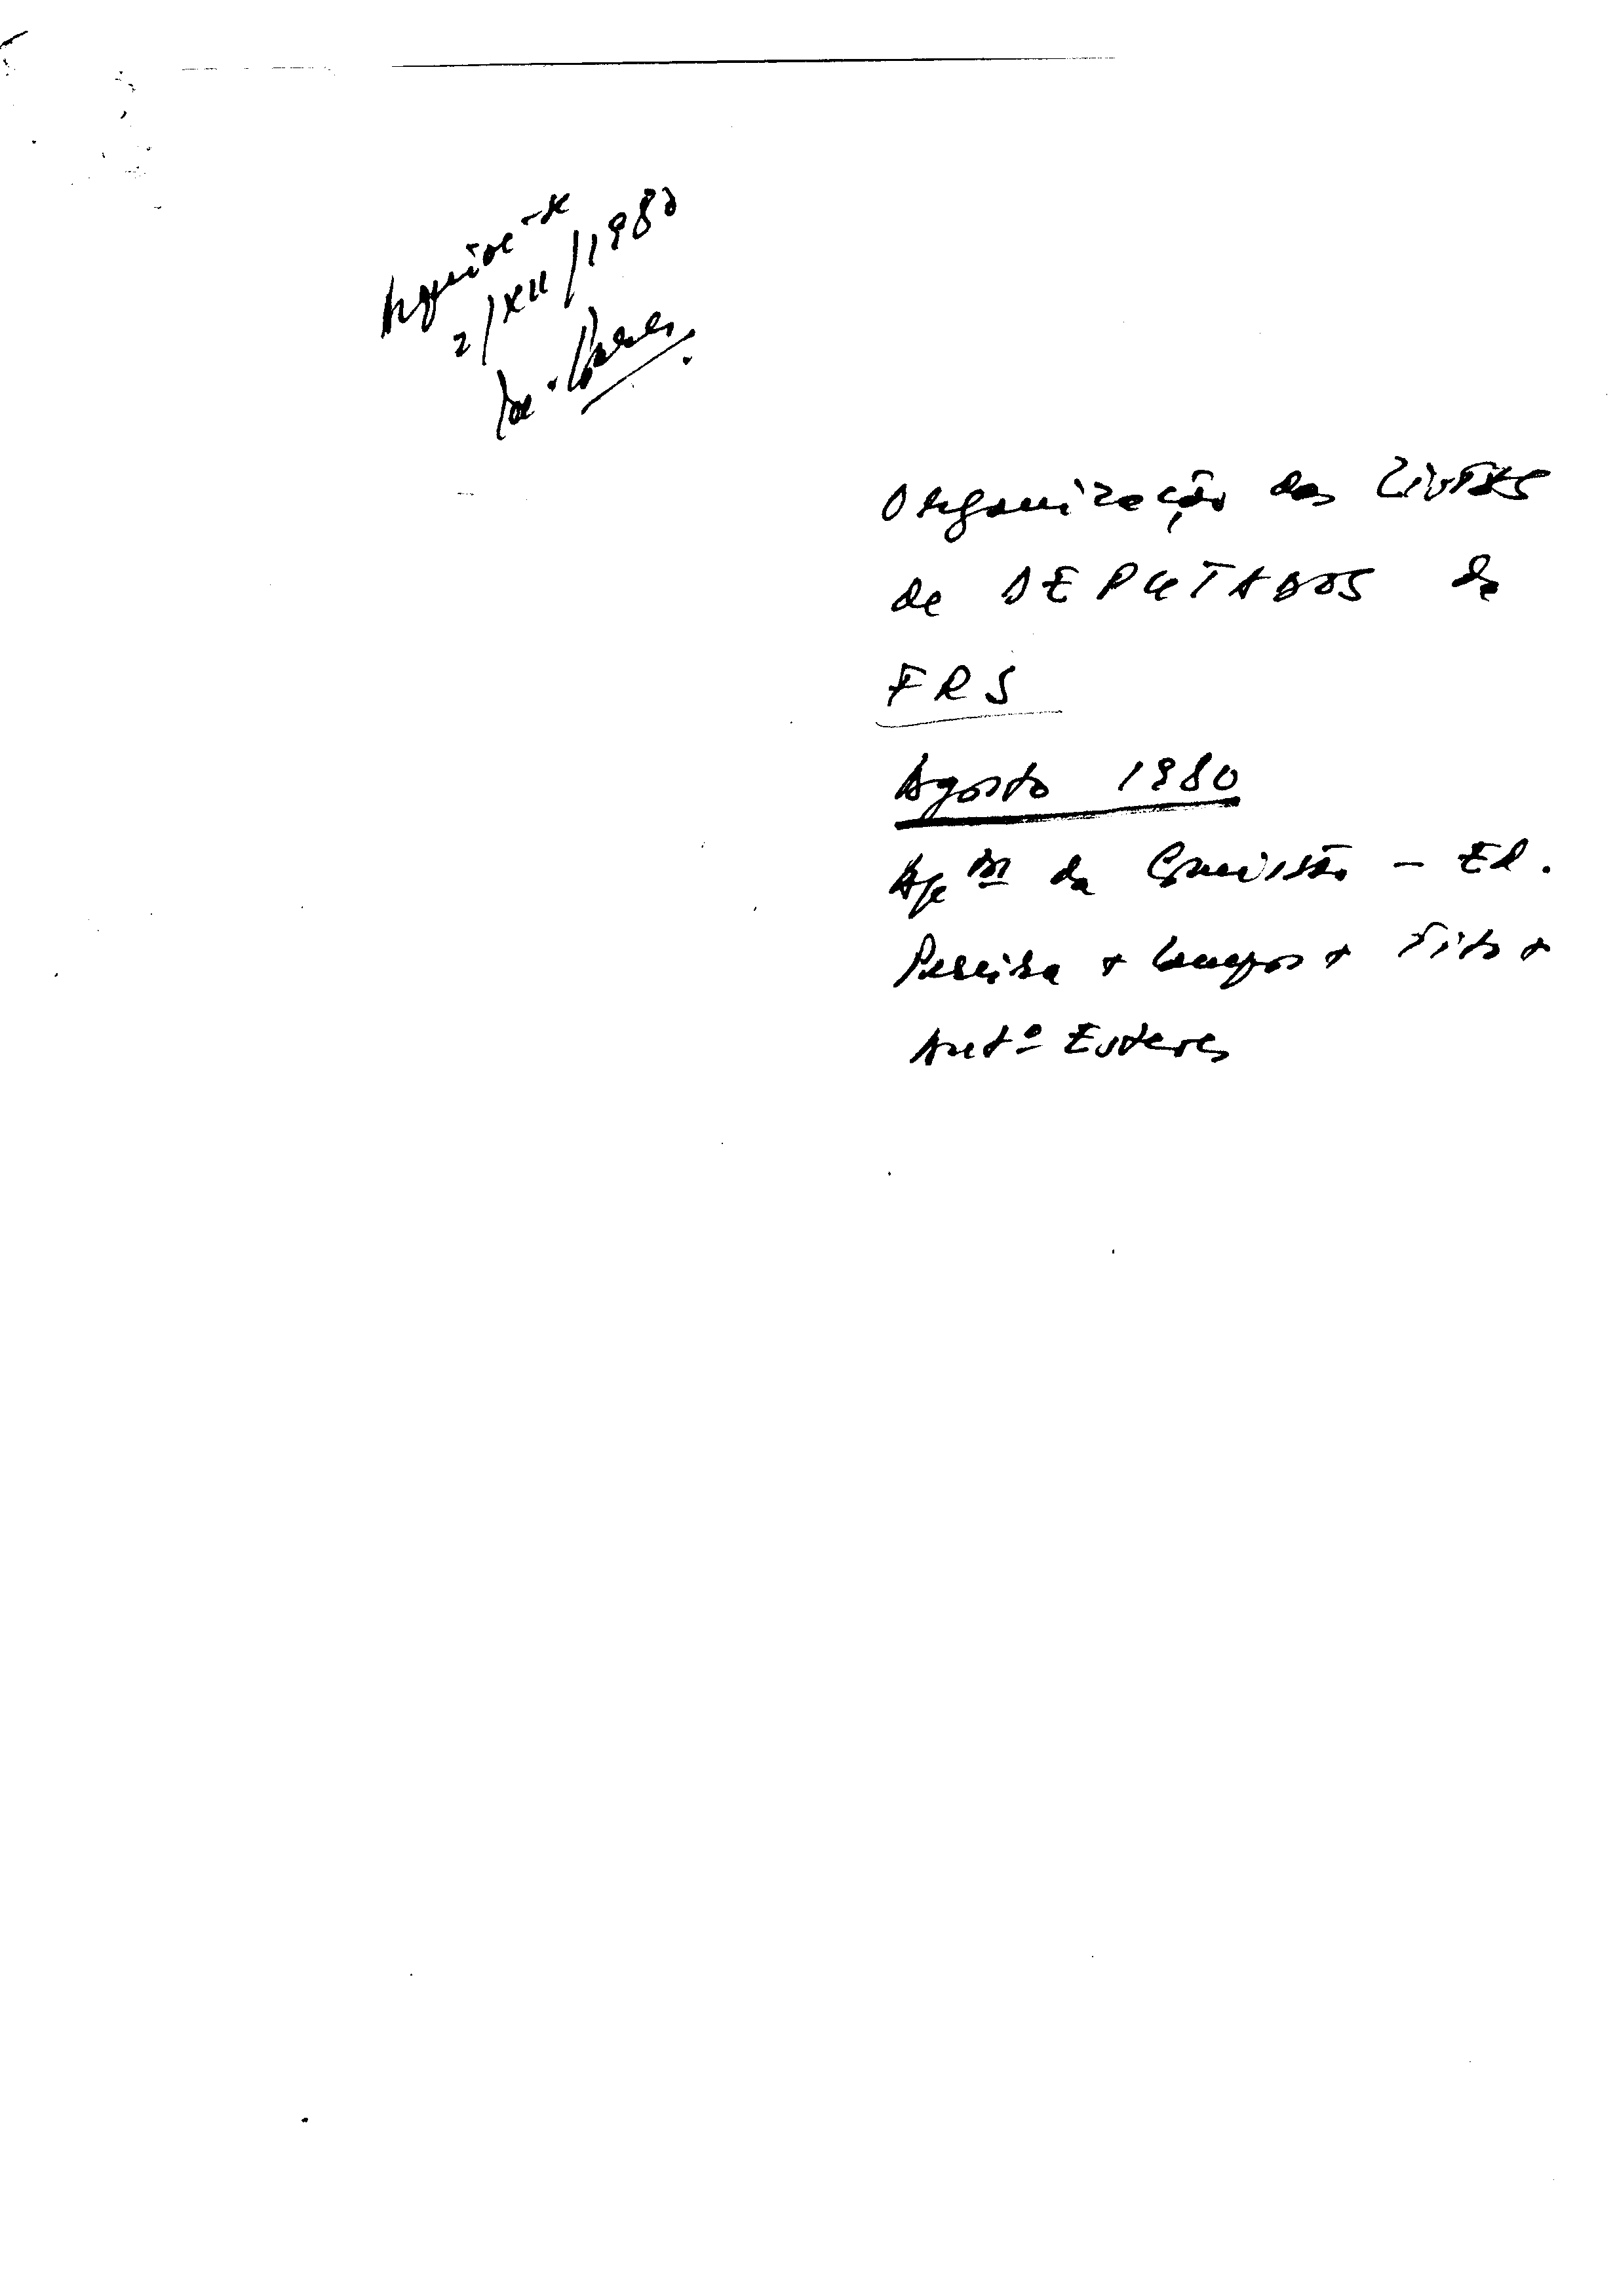 Arquive-se
2/XII/1980
Organização das Listas
de DEPUTADOS da
FRS
Agosto 1980
da Comissão - Ed.
Pereira + Campos + Tito +
Antº Esteves